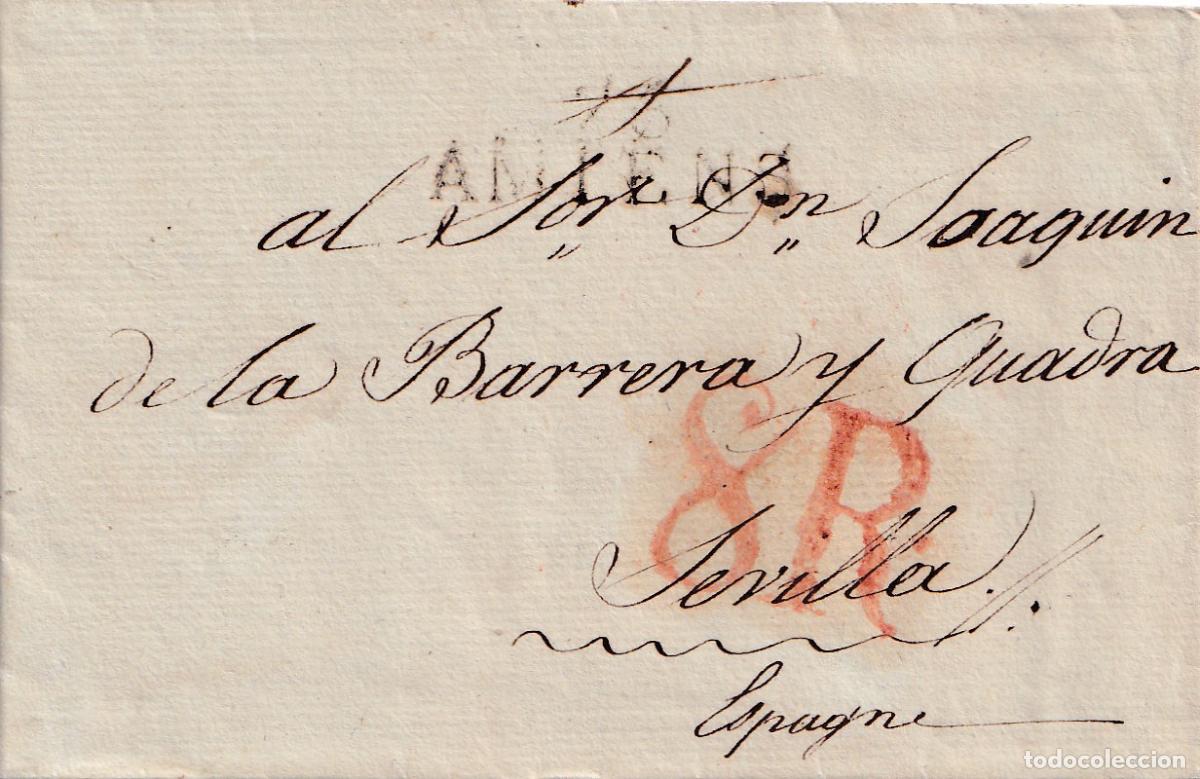 AMIENS
al Sor Dn Joaquin
de la Barrera y Quadra
8R
Sevilla
Espagne
todocoleccion